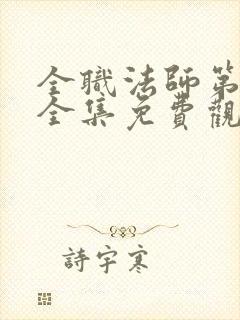 全職法師第
全集免費觀
詩宇寒